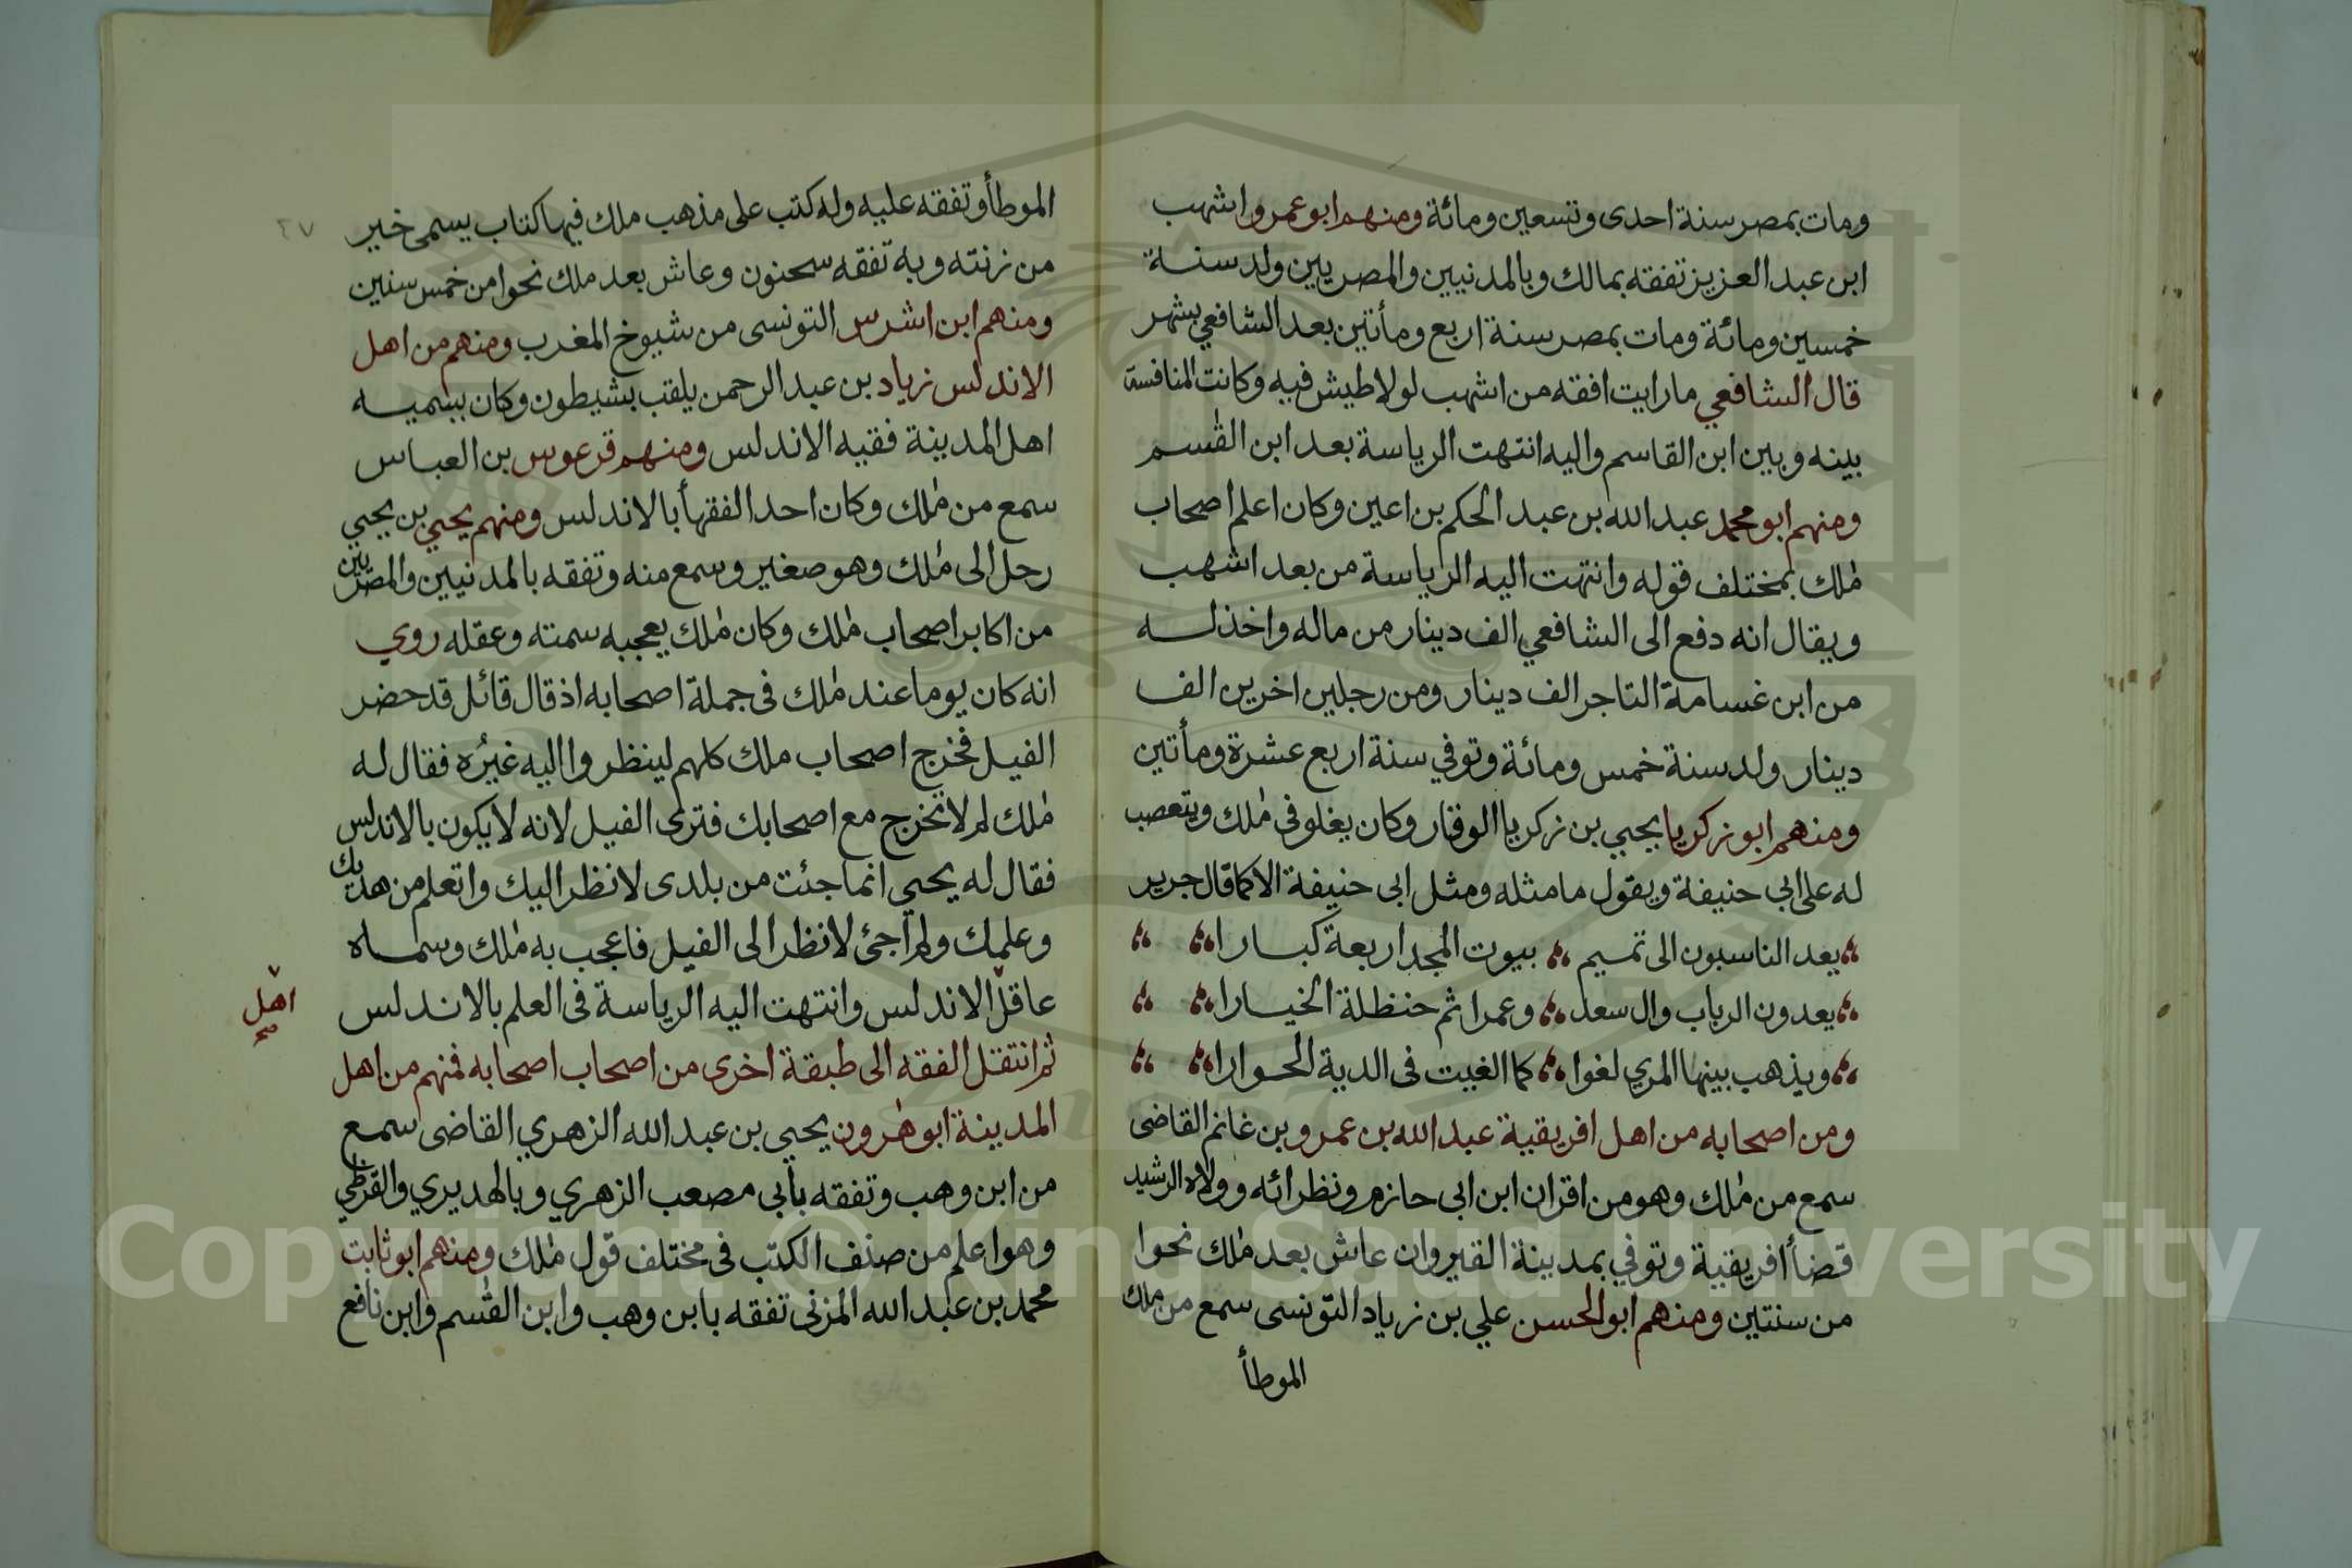 ومات بمصر سنة احدى وتسعين ومائة ومنهم ابو عمرو اشهب
ابن عبد العزيز تفقه بمالك وبالمدنيين والمصريين ولد سنة
خمسين ومائة ومات بمصر سنة اربع ومأتين بعد الشافعي بشهر
قال الشافعي ما رايت افقه من اشهب لولا طيش فيه وكانت المنافسة
بينه وبين ابن القاسم واليه انتهت الرياسة بعد ابن القسم
ومنهم ابو محمد عبد الله بن عبد الحكم بن اعين وكان اعلم اصحاب
ملك بمختلف قوله وانتهت اليه الرياسة من بعد اشهب
ويقال انه دفع الى الشافعي الف دينار من ماله واخذ له
من ابن غسامة التاجر الف دينار ومن رجلين اخرين الف
دينار ولد سنة خمس ومائة وتوفي سنة اربع عشرة ومأتين
ومنهم ابو زكريا يحيي بن زكريا الوقار وكان يغلو في ملك ويتعصب
له على ابي حنيفة ويقول ما مثله ومثل ابى حنيفة الا كما قال جرير
يعد الناسبون الى تميم بيوت المجد اربعة كبارا
يعدون الرباب وال سعد وعمرا ثم حنظلة الخيارا
ويذهب بينها المري لغوا كما الغيت فى الدية الحوارا
ومن اصحابه من اهل افريقية عبد الله بن عمرو بن غانم القاضى
سمع من ملك وهو من اقران ابن ابى حازم ونظرائه وولاه الرشيد
قضأ افريقية وتوفي بمدينة القيروان عاش بعد ملك نحوا
من سنتين ومنهم ابو الحسن علي بن زياد التونسى سمع من ملك
الموطأ
٤٧
الموطأ وتفقه عليه وله كتب على مذهب ملك فيها كتاب يسمى خير
من زنته وبه تفقه سحنون وعاش بعد ملك نحوا من خمس سنين
ومنهم ابن اشرس التونسى من شيوخ المغرب ومنهم من اهل
الاندلس زياد بن عبد الرحمن يلقب بشيطون وكان يسميه
اهل المدينة فقيه الاندلس ومنهم قرعوس بن العباس
سمع من ملك وكان احد الفقهأ بالاندلس ومنهم يحيي بن يحيي
رحل الى ملك وهو صغير وسمع منه وتفقه بالمدنيين والمصريين
من اكابر اصحاب ملك وكان ملك يعجبه سمته وعقله روي
انه كان يوما عند ملك فى جملة اصحابه اذ قال قائل قد حضر
الفيل فخرج اصحاب ملك كلهم لينظروا اليه غيره فقال له
ملك لم لا تخرج مع اصحابك فترى الفيل لانه لا يكون بالاندلس
فقال له يحيي انما جئت من بلدى لانظر اليك واتعلم من هديك
وعلمك ولم اجئ لانظر الى الفيل فاعجب به ملك وسماه
عاقل الاندلس وانتهت اليه الرياسة فى العلم بالاندلس
اهل
صح
ثم انتقل الفقه الى طبقة اخرى من اصحاب اصحابه فمنهم من اهل
المدينة ابو هرون يحيي بن عبد الله الزهري القاضى سمع
من ابن وهب وتفقه بأبى مصعب الزهري وبالهديري والقرظي
وهو اعلم من صنف الكتب فى مختلف قول ملك ومنهم ابو ثابت
محمد بن عبد الله المزنى تفقه بابن وهب وابن القسم وابن نافع
Copyright © King Saud University